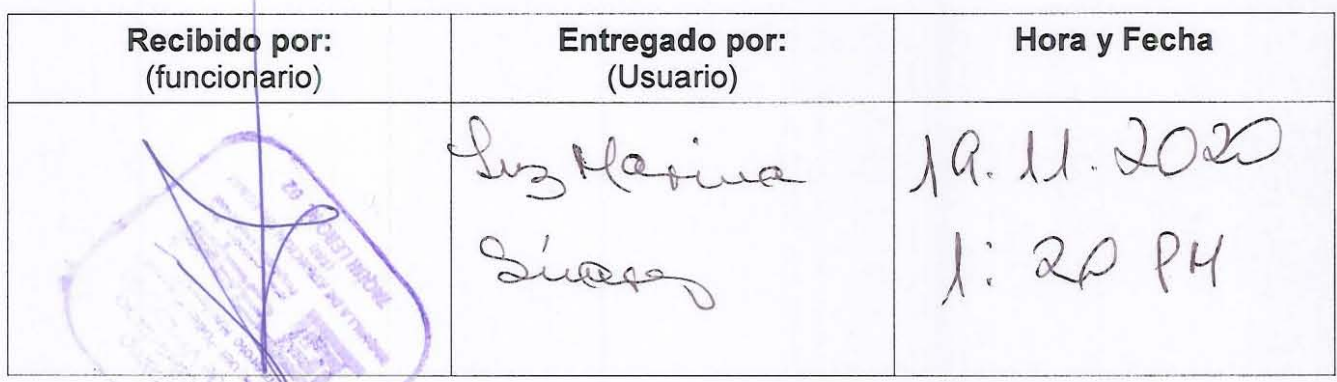 Recibido por:
(funcionario)
Entregado por:
(Usuario)
Hora y Fecha
Luz Marina
Súarez
19.11.2020
1:20 PM
TAQUILLERO 02